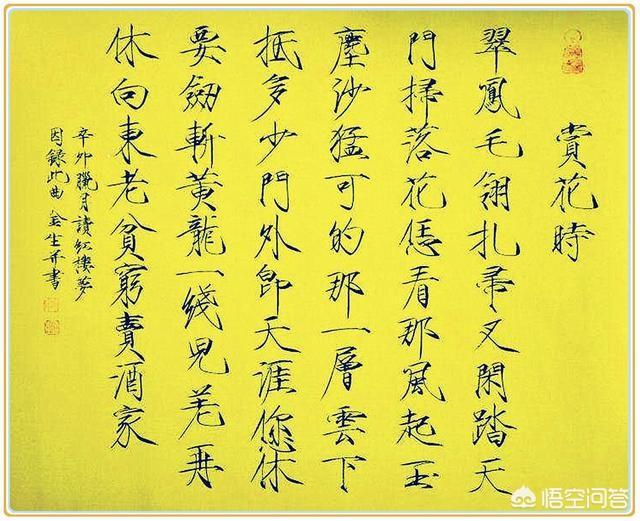 賞花時
翠鳳毛翎扎帚叉閑踏天
門掃落花恁看那風起玉
塵沙猛可的那一層雲下
抵多少門外即天涯您休
要劍斬黃龍一綫兒差再
休向東老貧窮賣酒家
辛卯臘月讀紅樓夢
因錄此曲 金生并書
悟空问答